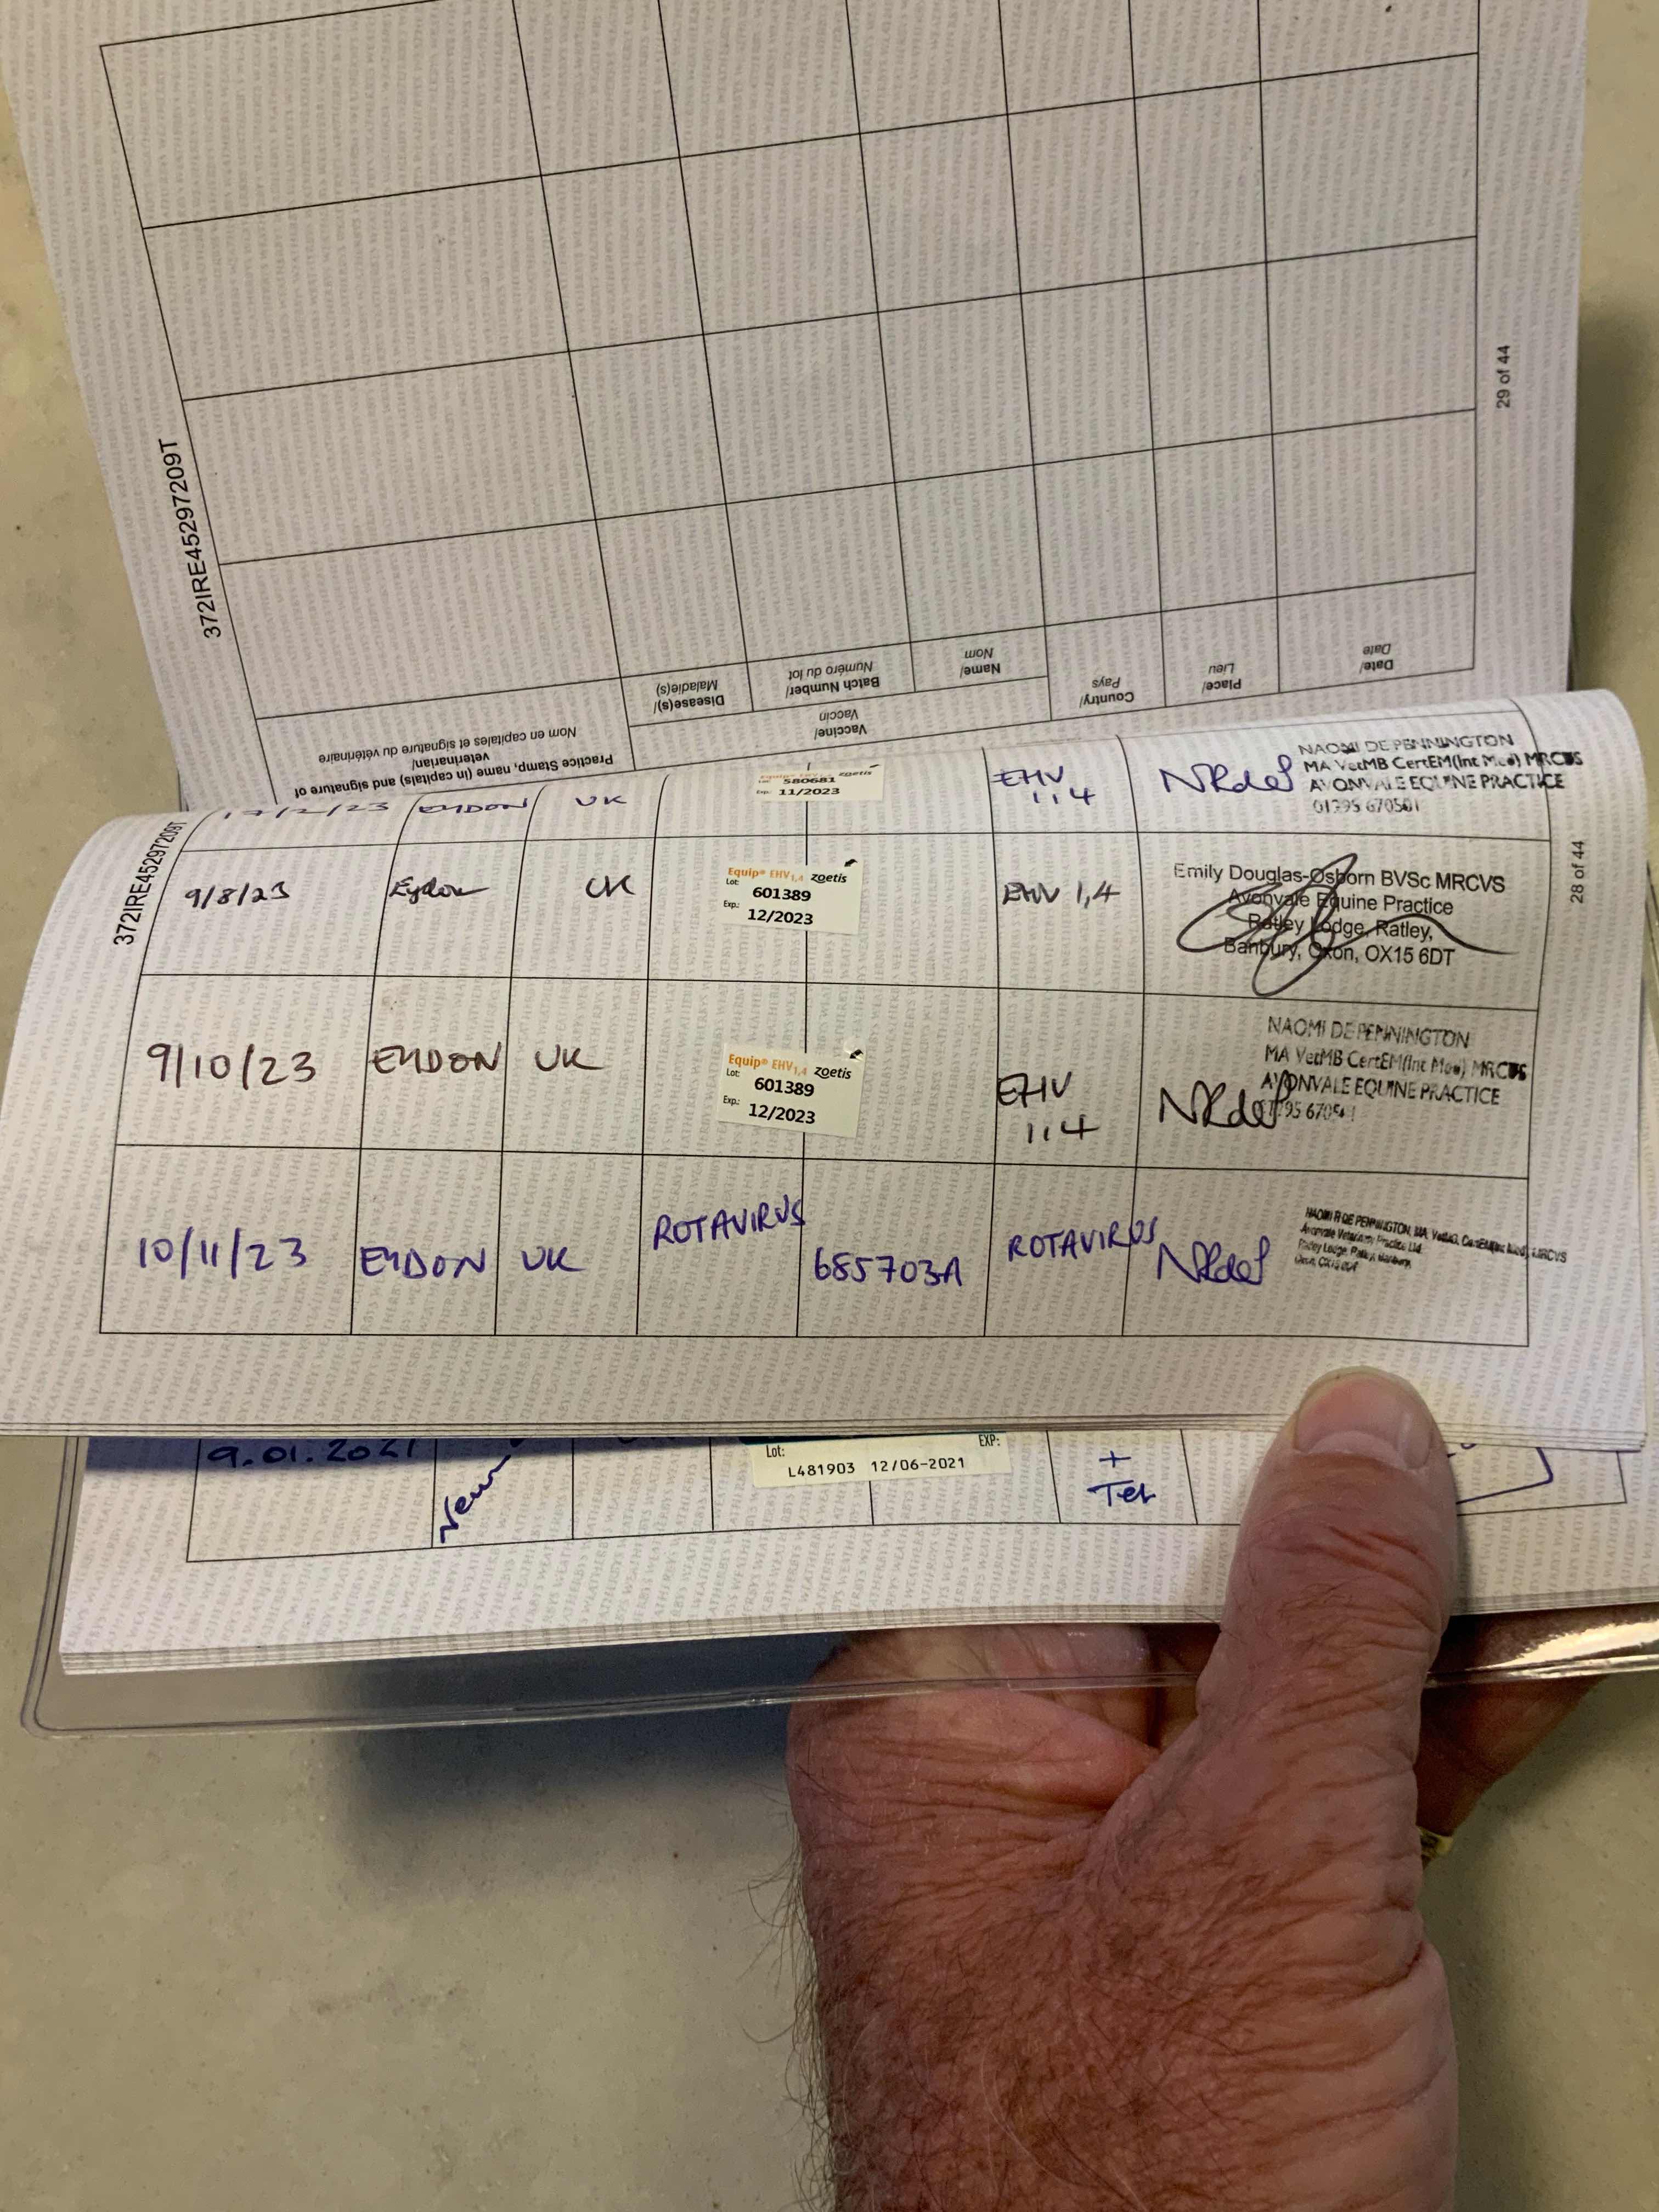 372IRE45297209T
29 of 44
Practice Stamp, name (in capitals) and signature of
veterinarian/
Nom en capitales et signature du vétérinaire
Vaccine/
Vaccin
Disease(s)/
Maladie(s)
Batch Number/
Numéro du lot
Name/
Nom
Country/
Pays
Place/
Lieu
Date/
Date
372IRE45297209T
28 of 44
17/2/23 EYDON UK
zoetis
580681
Exp: 11/2023
EHV
1,4
NRdeP
NAOMI DE PENNINGTON
MA VetMB CertEM(Int Med) MRCVS
AVONVALE EQUINE PRACTICE
01295 670501
9/8/23 Eydon UK
Equip® EHV1,4 zoetis
Lot: 601389
Exp.: 12/2023
EHV 1,4
Emily Douglas-Osborn BVSc MRCVS
Avonvale Equine Practice
Ratley Lodge, Ratley,
Banbury, Oxon, OX15 6DT
9/10/23 EYDON UK
Equip® EHV1,4 zoetis
Lot: 601389
Exp.: 12/2023
EHV
1,4
NRdeP
NAOMI DE PENNINGTON
MA VetMB CertEM(Int Med) MRCVS
AVONVALE EQUINE PRACTICE
10/11/23 EYDON UK ROTAVIRUS 685703A ROTAVIRUS NRdeP
NAOMI R DE PENNINGTON, MA, VetMB, CertEM(Int Med), MRCVS
Avonvale Veterinary Practice Ltd
Ratley Lodge, Ratley, Banbury,
Oxon, OX15 6DT
9.01.2021
Lot: EXP:
L481903 12/06-2021
+
Tet